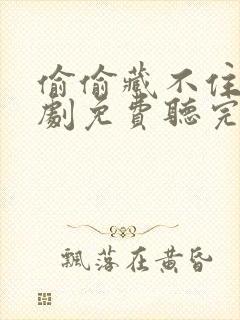 偷偷藏不住
劇免費聽完
飄落在黃昏